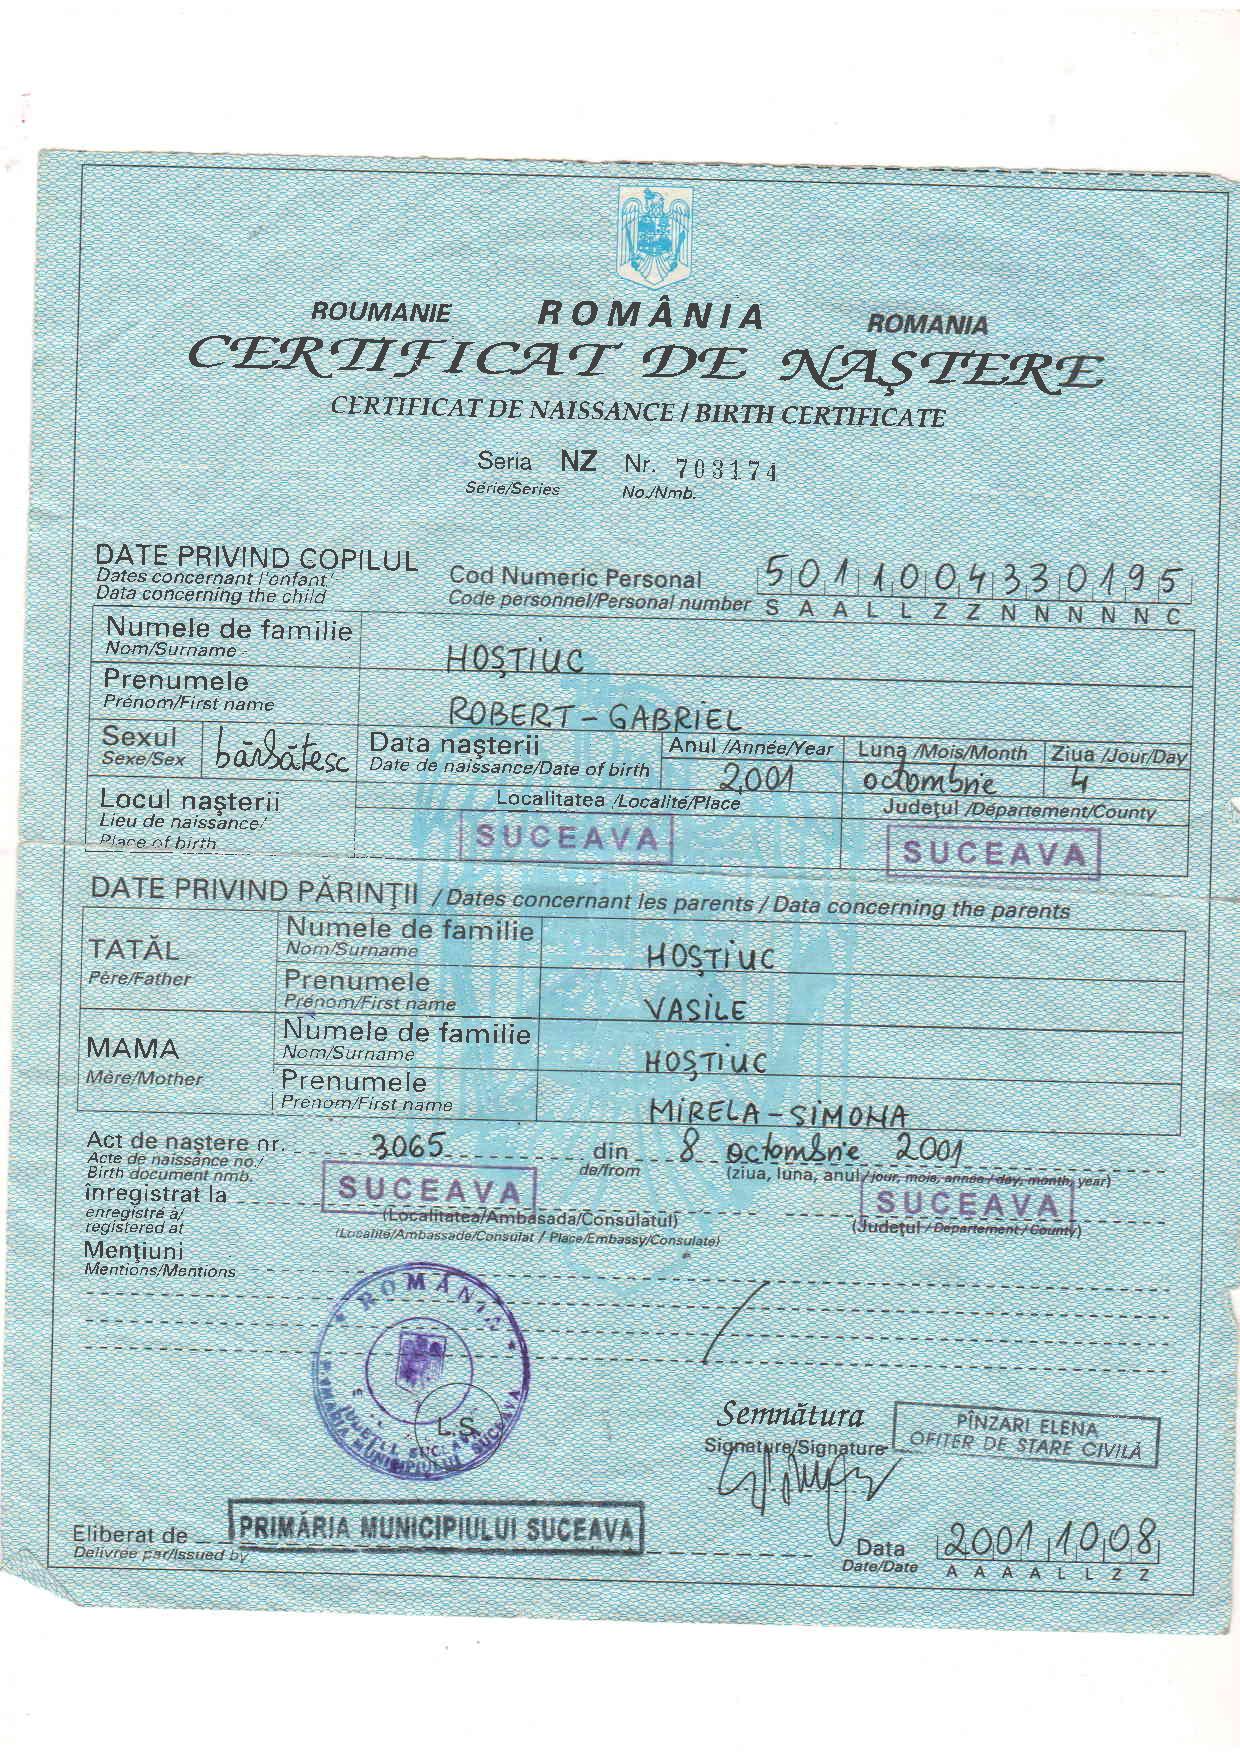 ROUMANIE ROMÂNIA ROMANIA
CERTIFICAT DE NAŞTERE
CERTIFICAT DE NAISSANCE / BIRTH CERTIFICATE
Seria NZ Nr. 703174
Série/Series No./Nmb.
DATE PRIVIND COPILUL
Dates concernant l'enfant/
Data concerning the child
Cod Numeric Personal 5011004330195
Code personnel/Personal number S A A L L Z Z N N N N N C
Numele de familie
Nom/Surname
HOŞTIUC
Prenumele
Prénom/First name
ROBERT-GABRIEL
Sexul
Sexe/Sex
bărbătesc
Data naşterii
Date de naissance/Date of birth
Anul /Année/Year Luna /Mois/Month Ziua /Jour/Day
2001 octombrie 4
Locul naşterii
Lieu de naissance/
Place of birth
Localitatea /Localité/Place Judeţul /Département/County
SUCEAVA SUCEAVA
DATE PRIVIND PĂRINŢII / Dates concernant les parents / Data concerning the parents
TATĂL
Père/Father
Numele de familie
Nom/Surname
HOŞTIUC
Prenumele
Prénom/First name
VASILE
MAMA
Mère/Mother
Numele de familie
Nom/Surname
HOŞTIUC
Prenumele
Prenom/First name
MIRELA-SIMONA
Act de naştere nr. 3065 din 8 octombrie 2001
Acte de naissance no./ de/from (ziua, luna, anul / jour, mois, année / day, month, year)
Birth document nmb.
înregistrat la SUCEAVA SUCEAVA
enregistré à/ (Localitatea/Ambasada/Consulatul) (Judeţul / Département / County)
registered at (Localité/Ambassade/Consulat / Place/Embassy/Consulate)
Menţiuni
Mentions/Mentions
ROMÂNIA
JUDEŢUL SUCEAVA
PRIMĂRIA MUNICIPIULUI SUCEAVA
L.S.
Semnătura
Signature/Signature
PÎNZARI ELENA
OFIŢER DE STARE CIVILĂ
Eliberat de PRIMĂRIA MUNICIPIULUI SUCEAVA
Delivrée par/Issued by
Data 2001 10 08
Date/Date A A A A L L Z Z